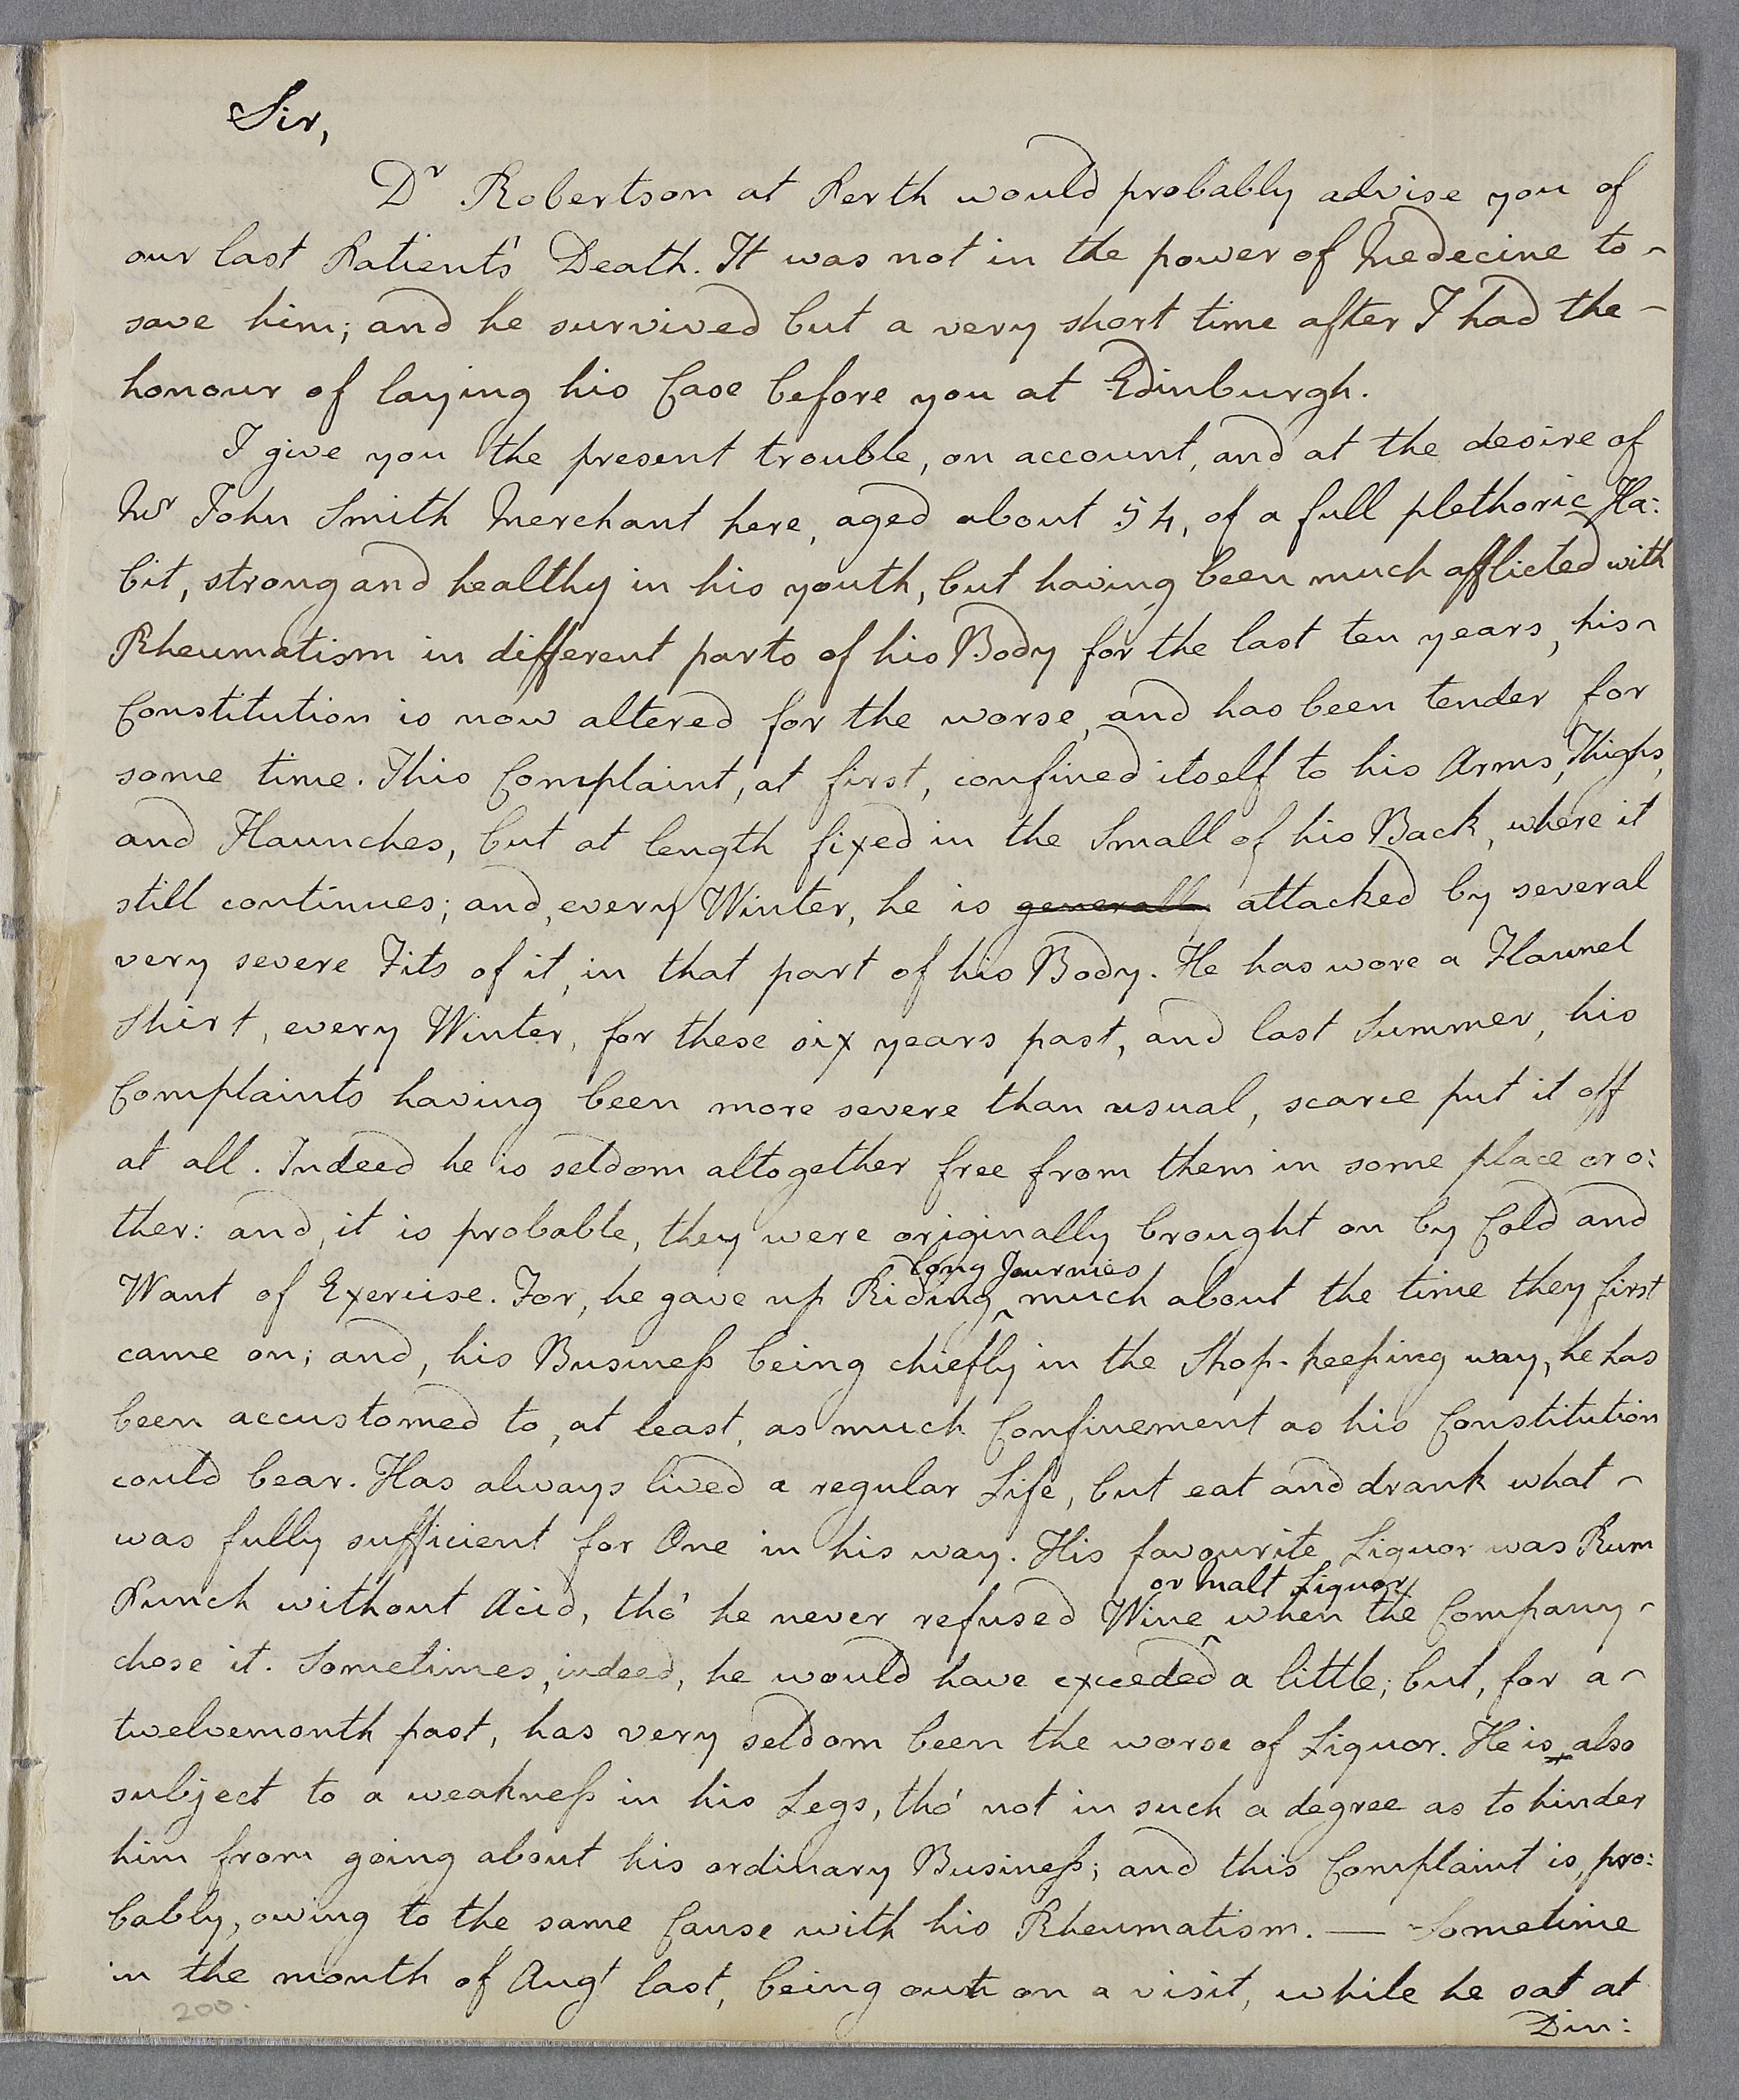 Sir,
Dr Robertson at Perth would probably advise you of
our last Patient's Death. It was not in the power of Medecine to
save him; and he survived but a very short time after I had the
honour of laying his Case before you at Edinburgh.
I give you the present trouble, on account, and at the desire of
Mr John Smith Merchant here, aged about 54, of a full plethoric Ha:
bit, strong and healthy in his youth, but having been much afflicted with
Rheumatism in different parts of his Body for the last ten years, his
Constitution is now altered for the worse, and has been tender for
some time. This Complaint, at first, confined itself to his Arms, Thighs,
and Haunches, but at length fixed in the Small of his Back, where it
still continues; and, every Winter, he is generally attacked by several
very severe Fits of it, in that part of his Body. He has wore a Flannel
Shirt, every Winter, for these six years past, and last Summer, his
Complaints having been more severe than usual, scarce put it off
at all. Indeed he is seldom altogether free from them in some place or o:
ther: and, it is probable, they were originally brought on by Cold and
long Journies
Want of Exercise. For, he gave up Riding ^ much about the time they first
came on; and, his Business being chiefly in the Shop-keeping way, he has
been accustomed to, at least, as much Confinement as his Constitution
could bear. Has always lived a regular Life, but eat and drank what
was fully sufficient for One in his way. His favourite Liquor was Rum
or Malt Liquor
Punch without Acid, tho' he never refused Wine ^ when the Company
chose it. Sometimes, indeed, he would have exceeded a little; but, for a
twelvemonth past, has very seldom been the worse of Liquor. He is also
subject to a weakness in his Legs, tho' not in such a degree as to hinder
him from going about his ordinary Business; and this Complaint is, pro:
bably, owing to the same Cause with his Rheumatism. — Sometime
in the month of Augt last, being out on a visit, while he sat at
200.
Din: